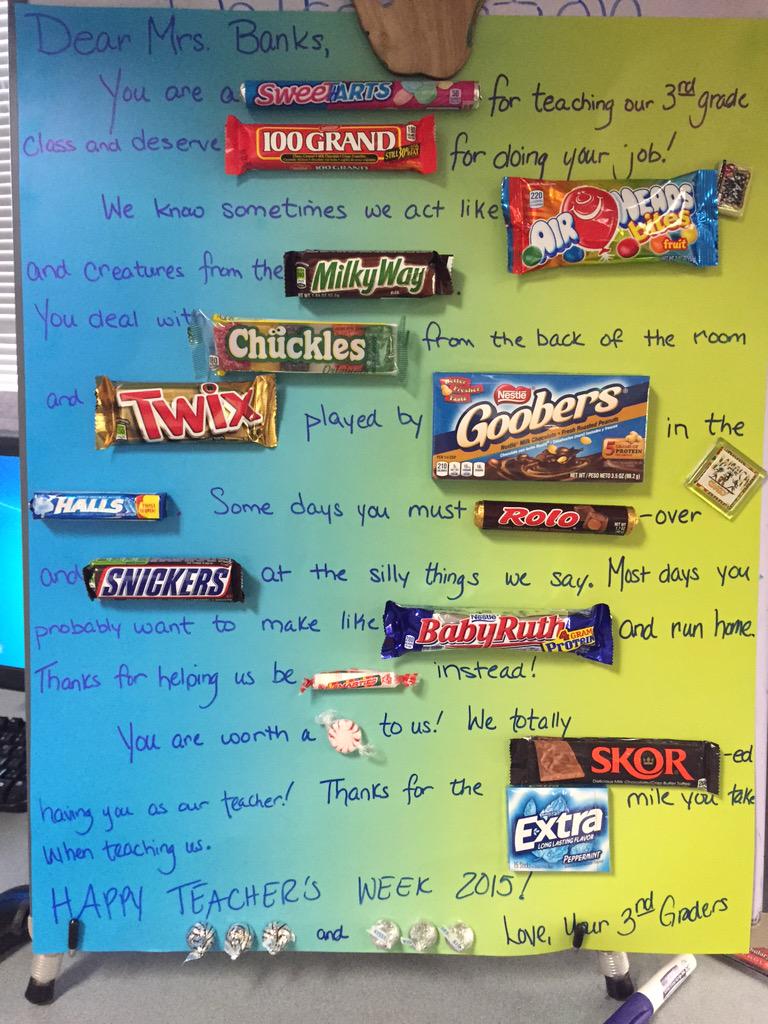 Dear Mrs. Banks,
You are a SweeTARTS for teaching our 3rd grade
class and deserve 100 GRAND for doing your job!
We know sometimes we act like AIRHEADS bites fruit
and creatures from the Milky Way.
You deal with Chuckles from the back of the room
and TWIX played by Nestlé Goobers in the
HALLS Some days you must ROLO -over
and SNICKERS at the silly things we say. Most days you
probably want to make like Nestlé Baby Ruth 4 GRAM PROTEIN and run home.
Thanks for helping us be SMARTIES instead!
You are worth a to us! We totally SKOR -ed
having you as our teacher! Thanks for the Extra LONG LASTING FLAVOR PEPPERMINT mile you take
when teaching us.
HAPPY TEACHER'S WEEK 2015!
and Love, Your 3rd Graders